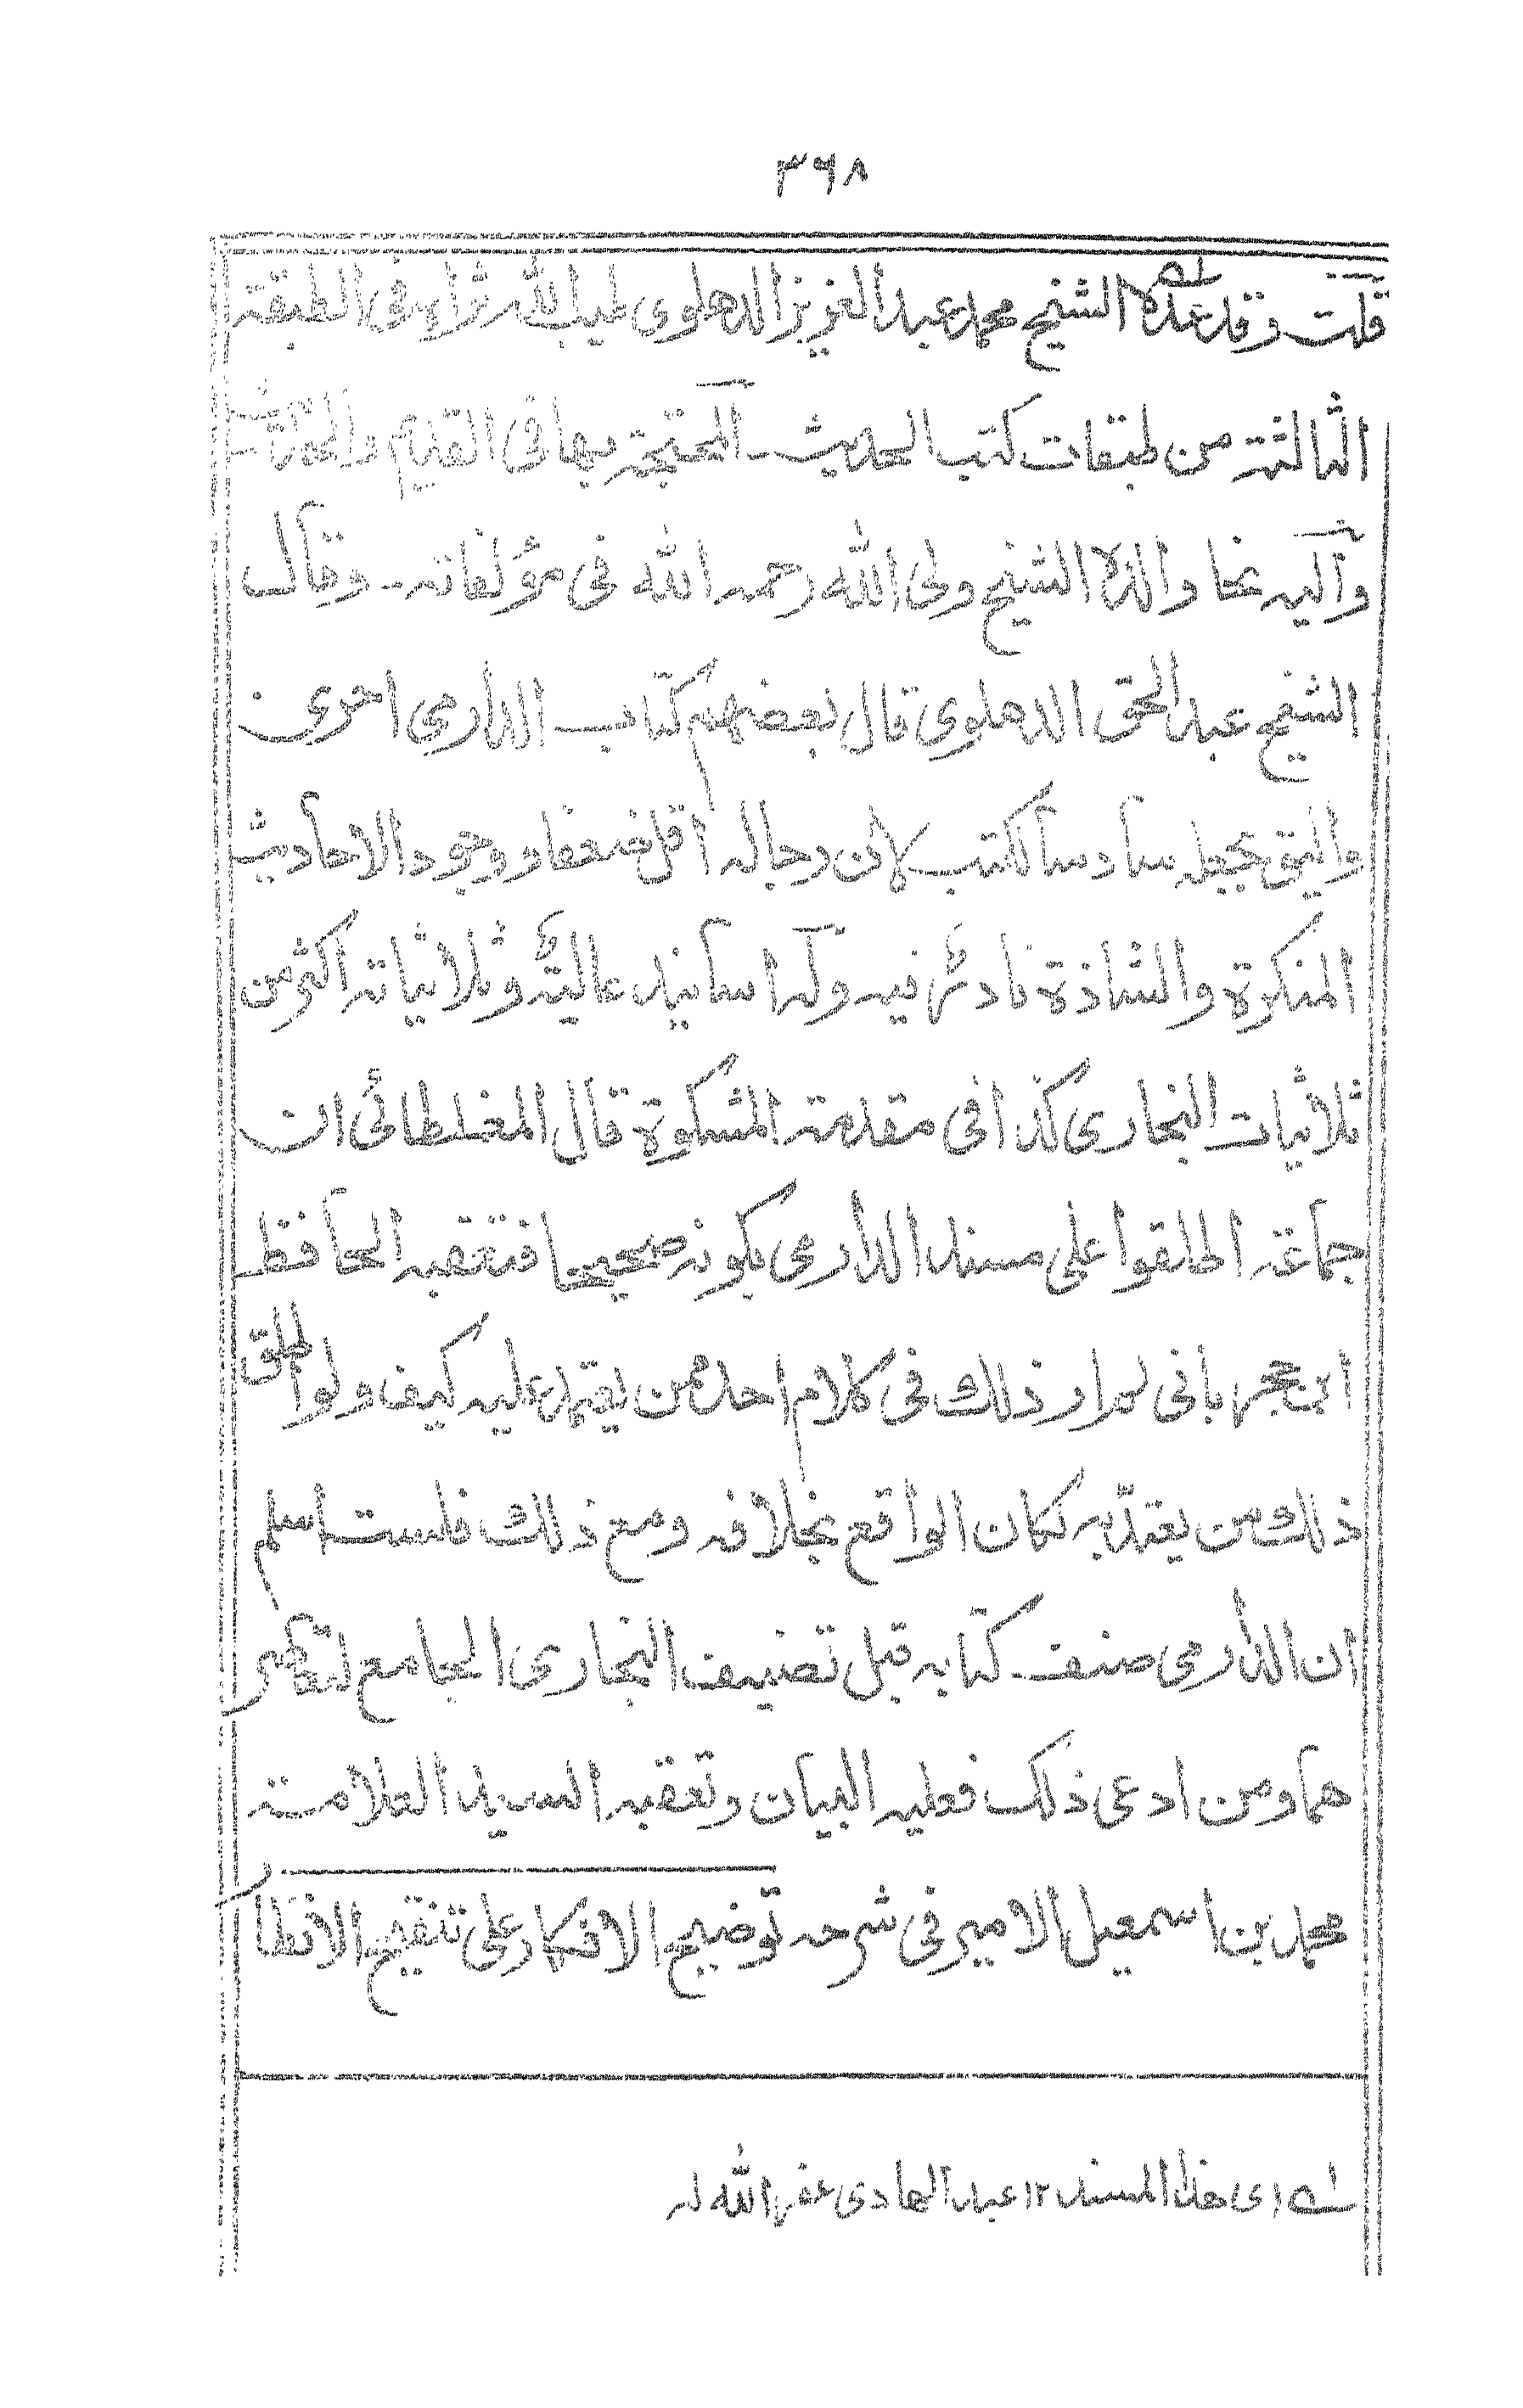 ٣٦٨
قلت وقد عده الشيخ محمد عبد العزيز الدهلوى طيب الله ثراه فى الطبقة
الثالثة من طبقات كتب الحديث المحتجة بها فى القديم والحديث
واليه نحا والده الشيخ ولى الله رحمه الله فى مؤلفاته وقال
الشيخ عبد الحق الدهلوى قال بعضهم كتاب الدارمى احرى
واليق بجعله سادسا لكتب لان رجاله اقل ضعفا ووجود الاحاديث
المنكرة والشاذة نادر فيه وله اسانيد عالية وثلاثياته اكثر من
ثلاثيات البخارى كذا فى مقدمة المشكوة قال المغلطائى ان
جماعة اطلقوا على مسند الدارمى بكونه صحيحا فتعقبه الحافظ
ابن حجر بانى لم ار ذلك فى كلام احد ممن يعتمد عليه كيف ولو اطلق
ذلك من يعتد به لكان الواقع بخلافه ومع ذلك فلست اسلم
ان الدارمى صنف كتابه قبل تصنيف البخارى الجامع لتعاصر
هما ومن ادعى ذلك فعليه البيان وتعقبه السيد العلامة
محمد بن اسمعيل الامير فى شرحه توضيح الافكار على تنقيح الانظار
له اى هذا المسند ١٢ عبد الهادى غفر الله له